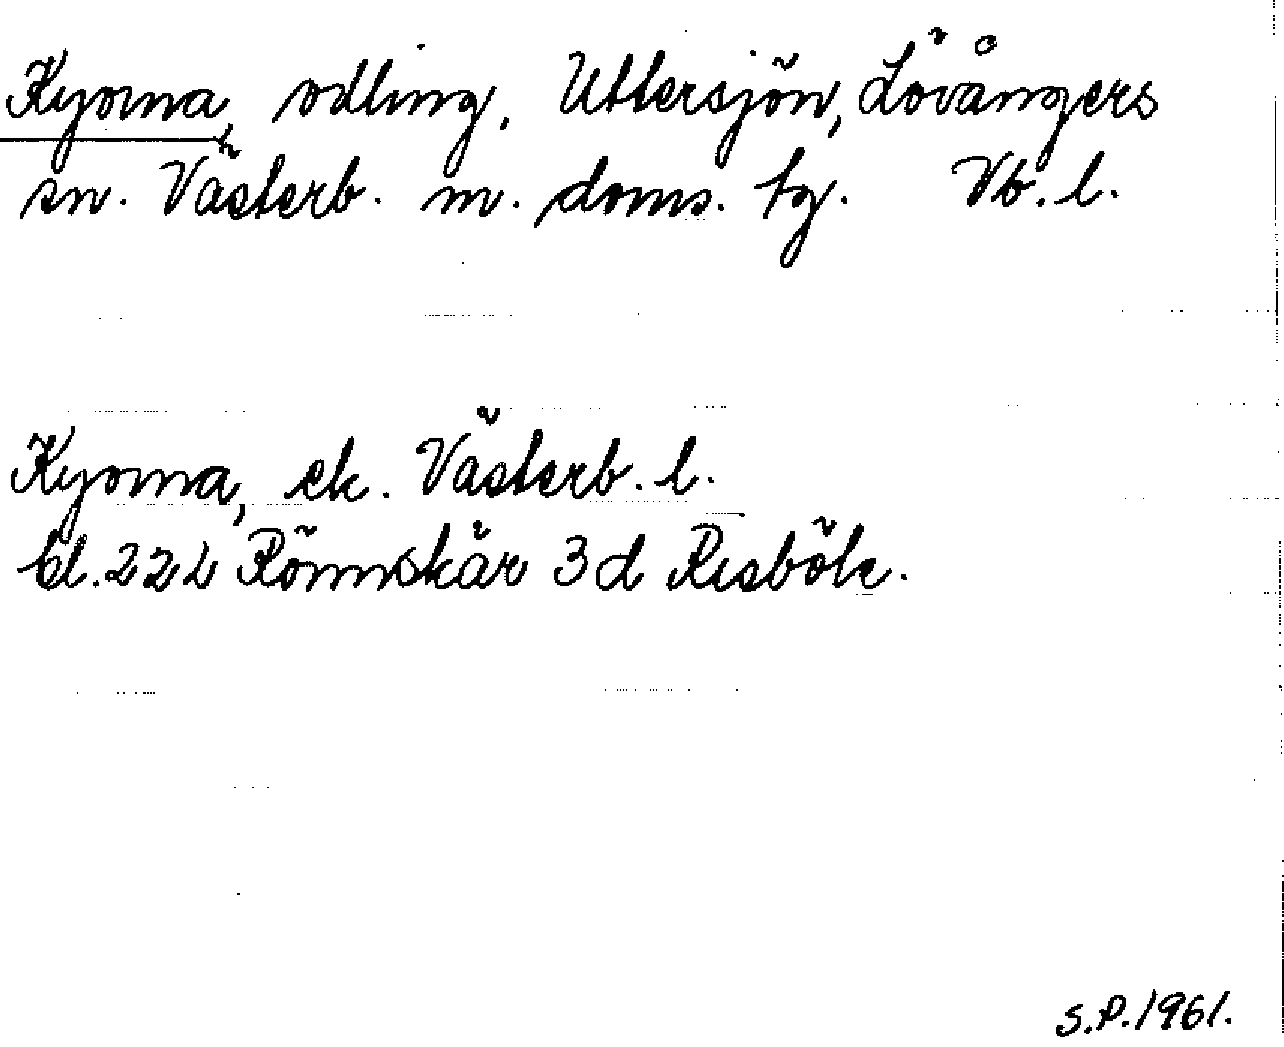 Kyorna, odling, Uttersjön, Lövångers
sn. Västerb. m. doms. tg. Vb. l.
Kyorna, ek. Västerb. l.
bl. 22L Rönnskär 3d Risböle.
S.P. 1961.